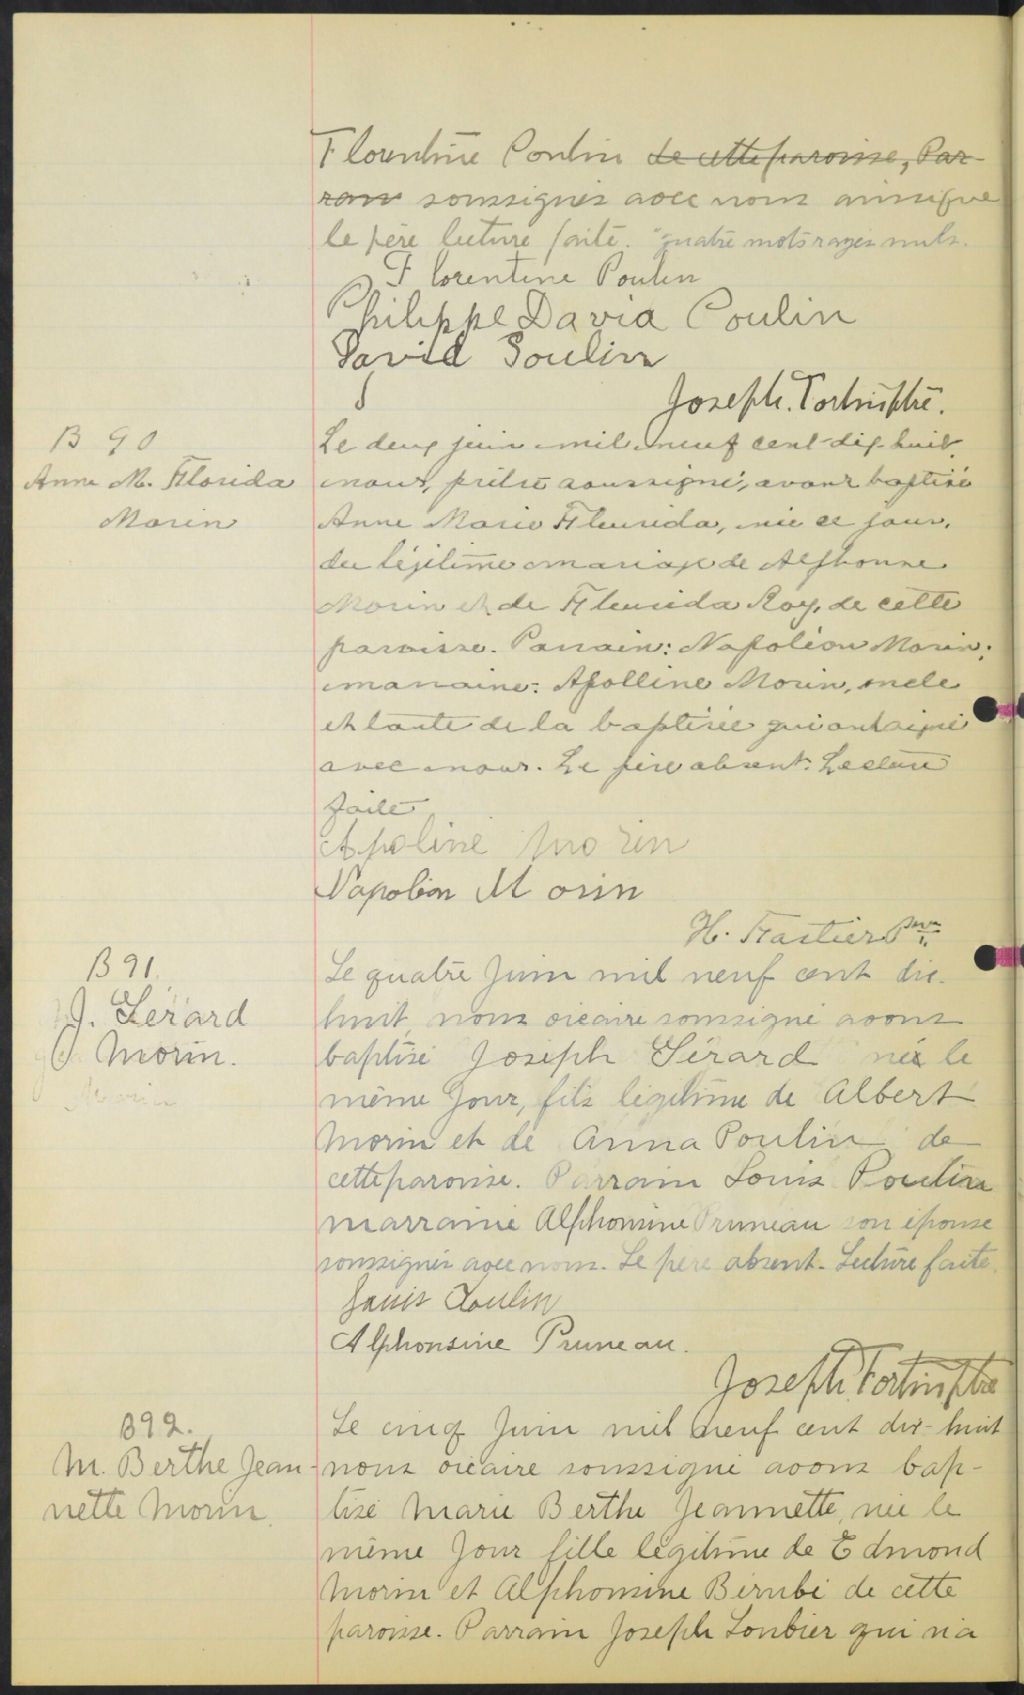 Florentine Poulin de cette paroisse, Par-
rain soussignés avec nous ainsi que
le père lecture faite. quatre mots rayés nuls.
Florentine Poulin
Philippe David Poulin
David Poulin
Joseph. Fortin ptre.
B 90
Anne M. Florida
Morin
Le deux juin mil neuf cent dix-huit
nous, prêtre soussigné, avons baptisé
Anne Marie Fleurida, née ce jour,
du légitime mariage de Alphonse
Morin et de Fleurida Roy, de cette
paroisse. Parrain: Napoléon Morin;
marraine: Apolline Morin, oncle
et tante de la baptisée qui ont signé
avec nous. Le père absent. Lecture
faite
Apoline Morin
Napoleon Morin
H. Ptre
B 91.
J. Gérard
Morin.
Morin
Le quatre Juin mil neuf cent dix-
huit, nous vicaire soussigné avons
baptisé Joseph Gérard né le
même jour, fils légitime de Albert
Morin et de Anna Poulin de
cette paroisse. Parrain Louis Poulin
marraine Alphonsine Pruneau son épouse
soussignés avec nous. Le père absent. Lecture faite.
Louis Poulin
Alphonsine Pruneau.
Joseph Fortin ptre
B92.
M. Berthe Jean-
nette Morin.
Le cinq Juin mil neuf cent dix-huit
nous vicaire soussigné avons bap-
tisé Marie Berthe Jeannette, née le
même Jour fille légitime de Edmond
Morin et Alphonsine Bérubé de cette
paroisse. Parrain Joseph Loubier qui n'a